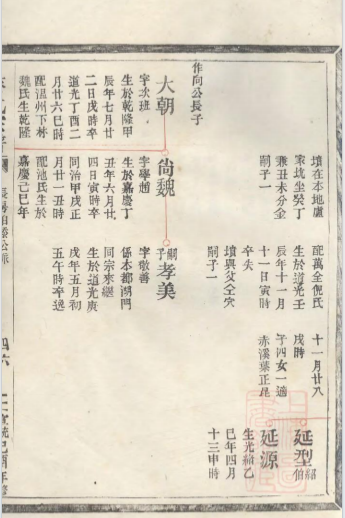 作向公長子
大朝
字次班
生於乾隆甲
辰年七月廿
二日戌時卒
道光丁酉二
月廿六巳時
配溫州下林
魏氏生乾隆
墳在本地盧
家坑坐癸丁
兼丑未分金
嗣子一
尙魏
字學趙
生於嘉慶丁
丑年六月廿
四日寅時卒
同治甲戌正
月廿一丑時
配池氏生於
嘉慶己巳年
配萬全倪氏
生於道光壬
辰年十一月
十一日寅時
卒失
墳與父仝穴
嗣子一
嗣子
孝美
字敬善
係本都湖門
同宗來繼
生於道光庚
戌年五月初
五午時卒逸
十一月廿八
戌時
子四女一適
赤溪葉正昆
延型
紹伯
延源
生光緒乙
巳年四月
十三申時
四六
宣統己酉年修